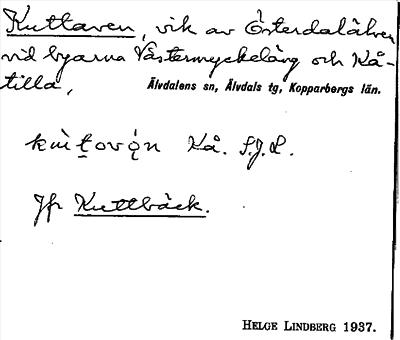 Kuttaven, vik av Österdalälven
vid byarna Västermyckeläng och Kå-
tilla, Älvdalens sn, Älvdals tg, Kopparbergs län.
Kå. S.J.L.
Jfr Kuttbäck.
HELGE LINDBERG 1937.